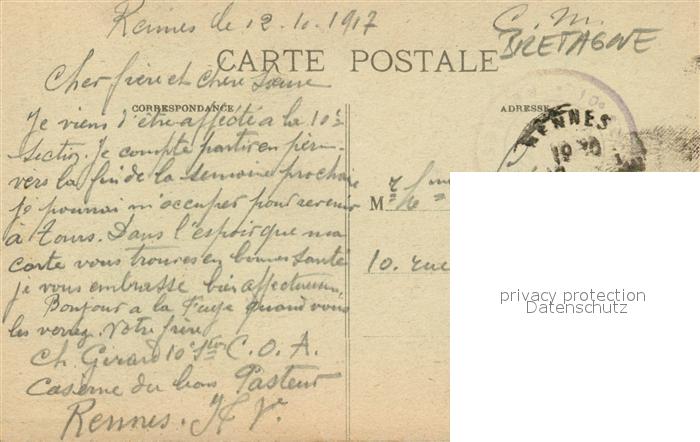 Rennes le 12.10.1917
C. M.
BRETAGNE
CARTE POSTALE
Cher frère et chère Sœur
CORRESPONDANCE
ADRESSE
RENNES
Je viens d'être affecté a la 10e
Section. Je compte partir en perm-
vers la fin de la semaine prochaine
je pourrai m'occuper pour revenir
à Tours. Dans l'espoir que ma
carte vous trouvera en bonne santé
je vous embrasse bien affectueusem.
Bonjour a la quand vous
les verrez. Votre frère
Ch. Girard 10e Son C.O.A.
Caserne du bons Pasteur
Rennes. I V.
M
10. rue
privacy protection
Datenschutz